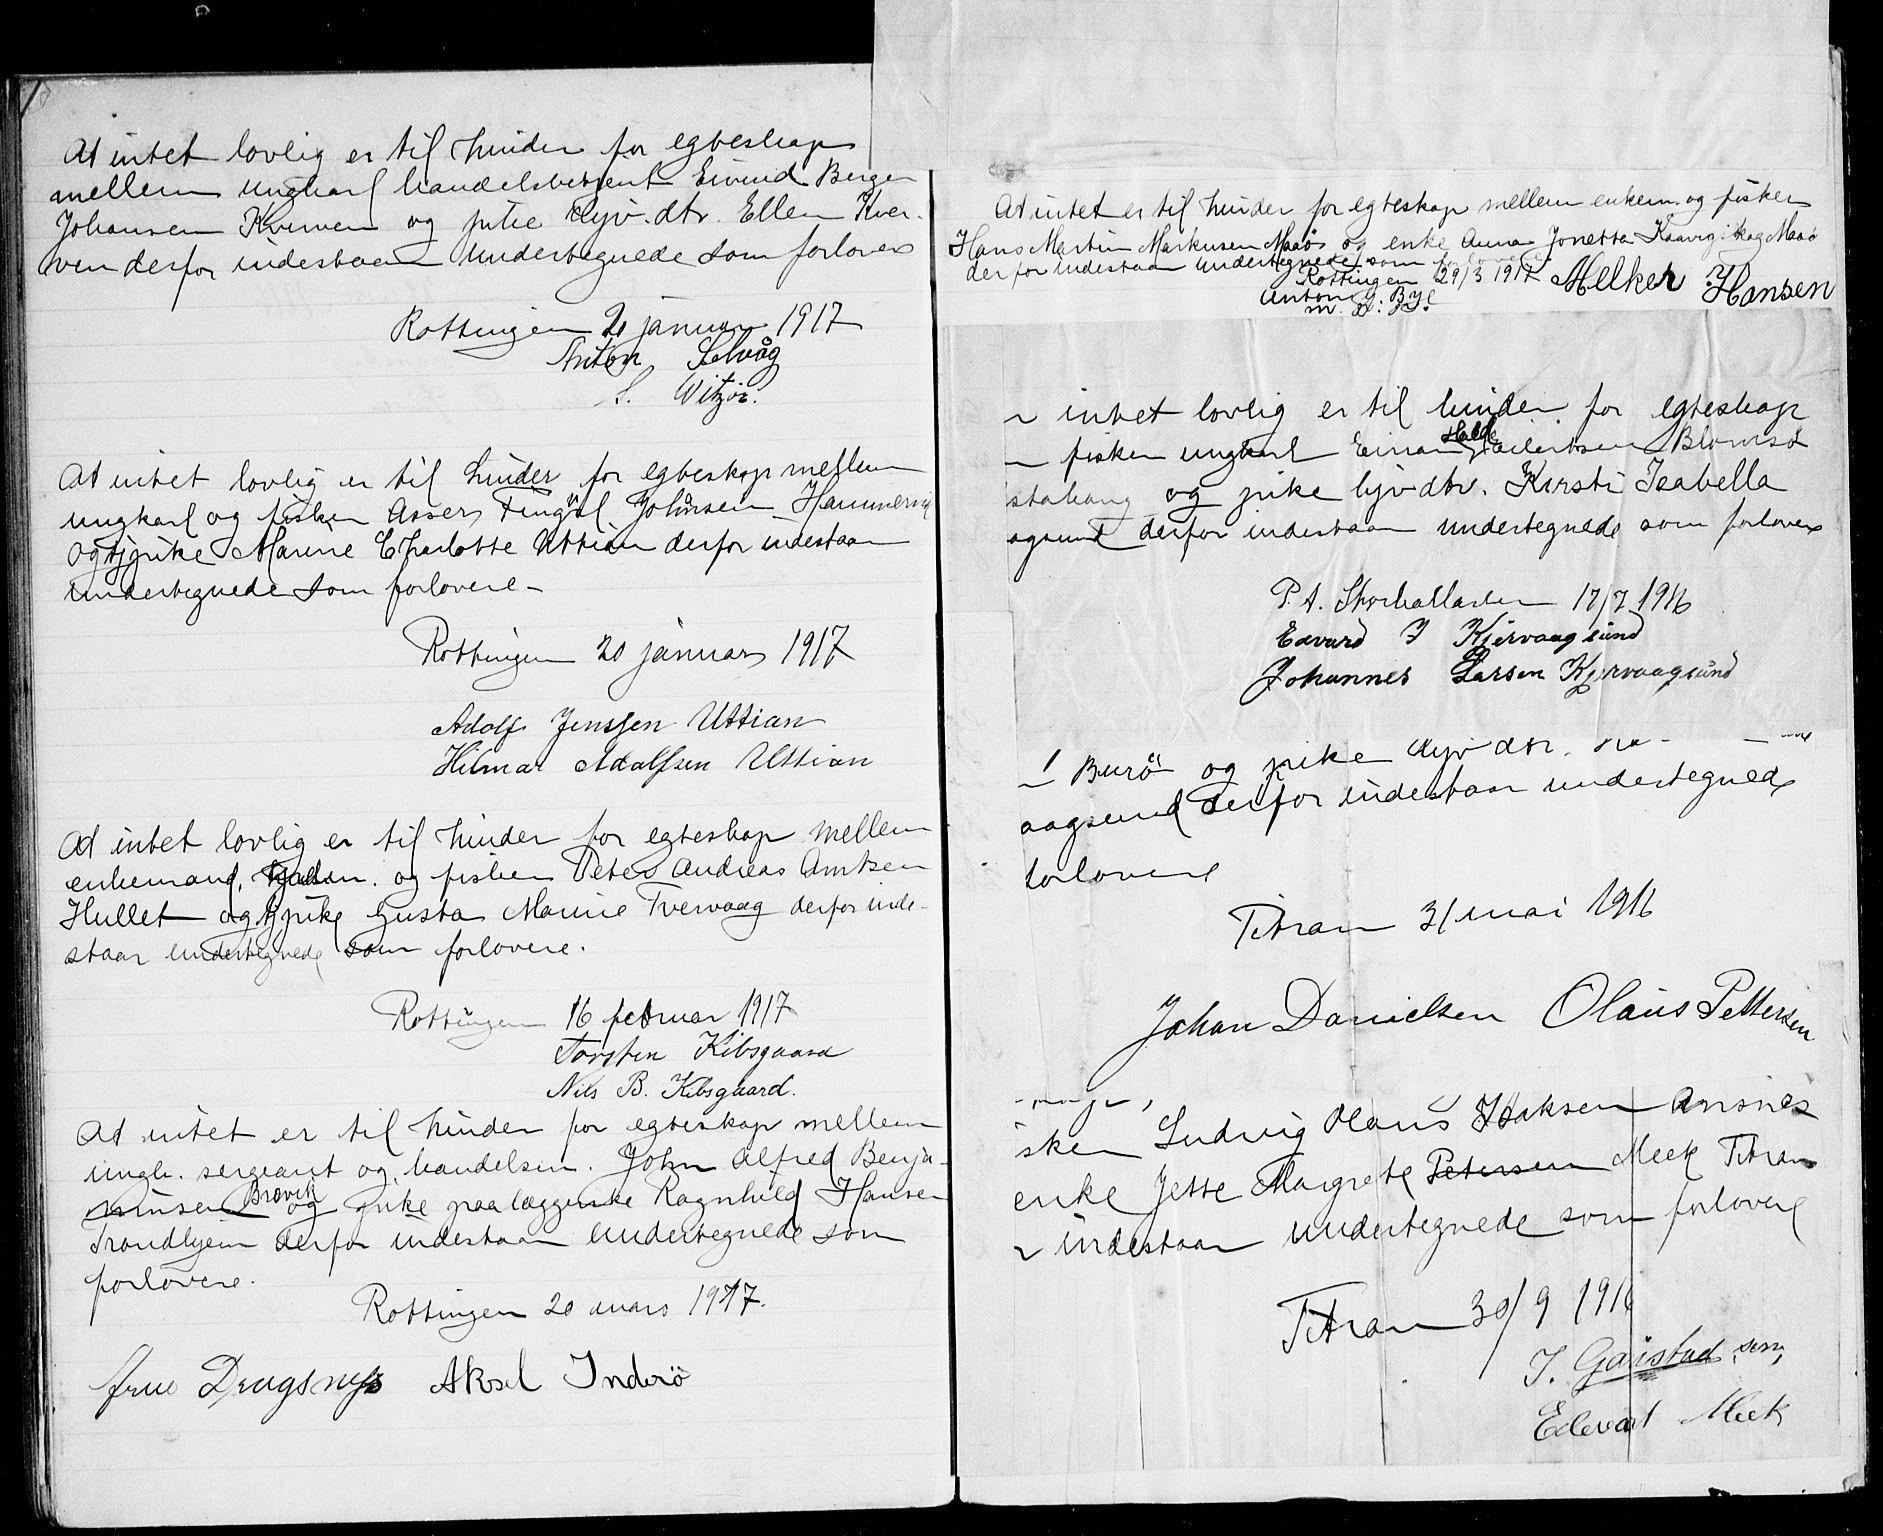 At intet lovlig er til hinder for egteskap
mellem ungkarl handelsbetjent Eivind Berger
Johansen Kverven og pike tjv.dtr. Ellen Kver-
ven derfor indestaar undertegnede som forlovere
Rottingen 20 januar 1917
Anton Selvåg
S. Witzø.
At intet lovlig er til hinder for egteskap mellem
ungkarl og fisker Asser Fingal Johnsen Hammervig
og tj pike Marine Charlotte Uttian derfor indestaar
undertegnede som forlovere -
Rottingen 20 januar 1917
Adolf Jenssen Uttian
Hilmar Adolfsen Uttian
At intet lovlig er til hinder for egteskap mellem
enkemand, og fisker Peter Andreas Arntsen
Hullet og tj pike Gusta Marine Tvervaag derfor inde-
staar undertegnede som forlovere.
Rottingen 16 februar 1917
Torsten Kibsgaard
Nils B. Kibsgaard.
At intet er til hinder for egteskap mellem
ungk. sergeant og handelsm. John Alfred Benja-
minsen Brevik og pike paalæggerske Ragnhild Hansen
Trondhjem derfor indestaar undertegnede som
forlovere.
Rottingen 20 mars 1917.
Aksel Inderö
At intet er til hinder for egteskap mellem enkem. og fisker
Hans Martin Markusen Maaø og enke Anna Jonetta Maaø
derfor indestaar undertegnede som forlovere.
Rottingen 29/3 1917 Melker Hansen
Anton J. Bye
m. p. p.
intet lovlig er til hinder for egteskap
fisker ungkarl Einar Eilertsen Blomsø
og pike tjv.dtr. Kirsti Isabella
agsund derfor indestaar undertegnede som forlovere
P.t. Storhallaren 17/7 1916
Edvard J Kjervaagsund
Johannes Larsen Kjervaagsund
Burø og pike tjv dtr.
aagsund derfor indestaar undertegnede
forlovere
Titran 31 mai 1916
Johan Danielsen Olaus Pettersen
isker Ludvig Olaus Isaksen Ansnes
enke Jette Margrete Petersen Meek Titran
indestaar undertegnede som forlovere
Titran 30/9 1916
J. Gaustad sen,
Edevart Meek